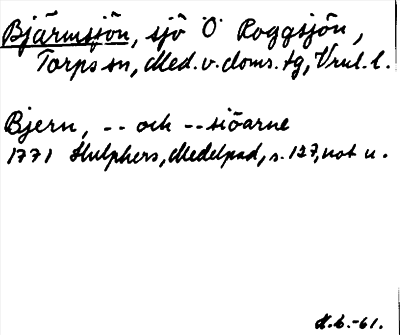 Bjärmsjön, sjö Ö Roggsjön,
Torps sn, Med. v. doms. tg, Vrnl. l.
Bjern, -- och --siöarne
1771 Hulphers, Medelpad, s. 127, not u.
H.b.-61.